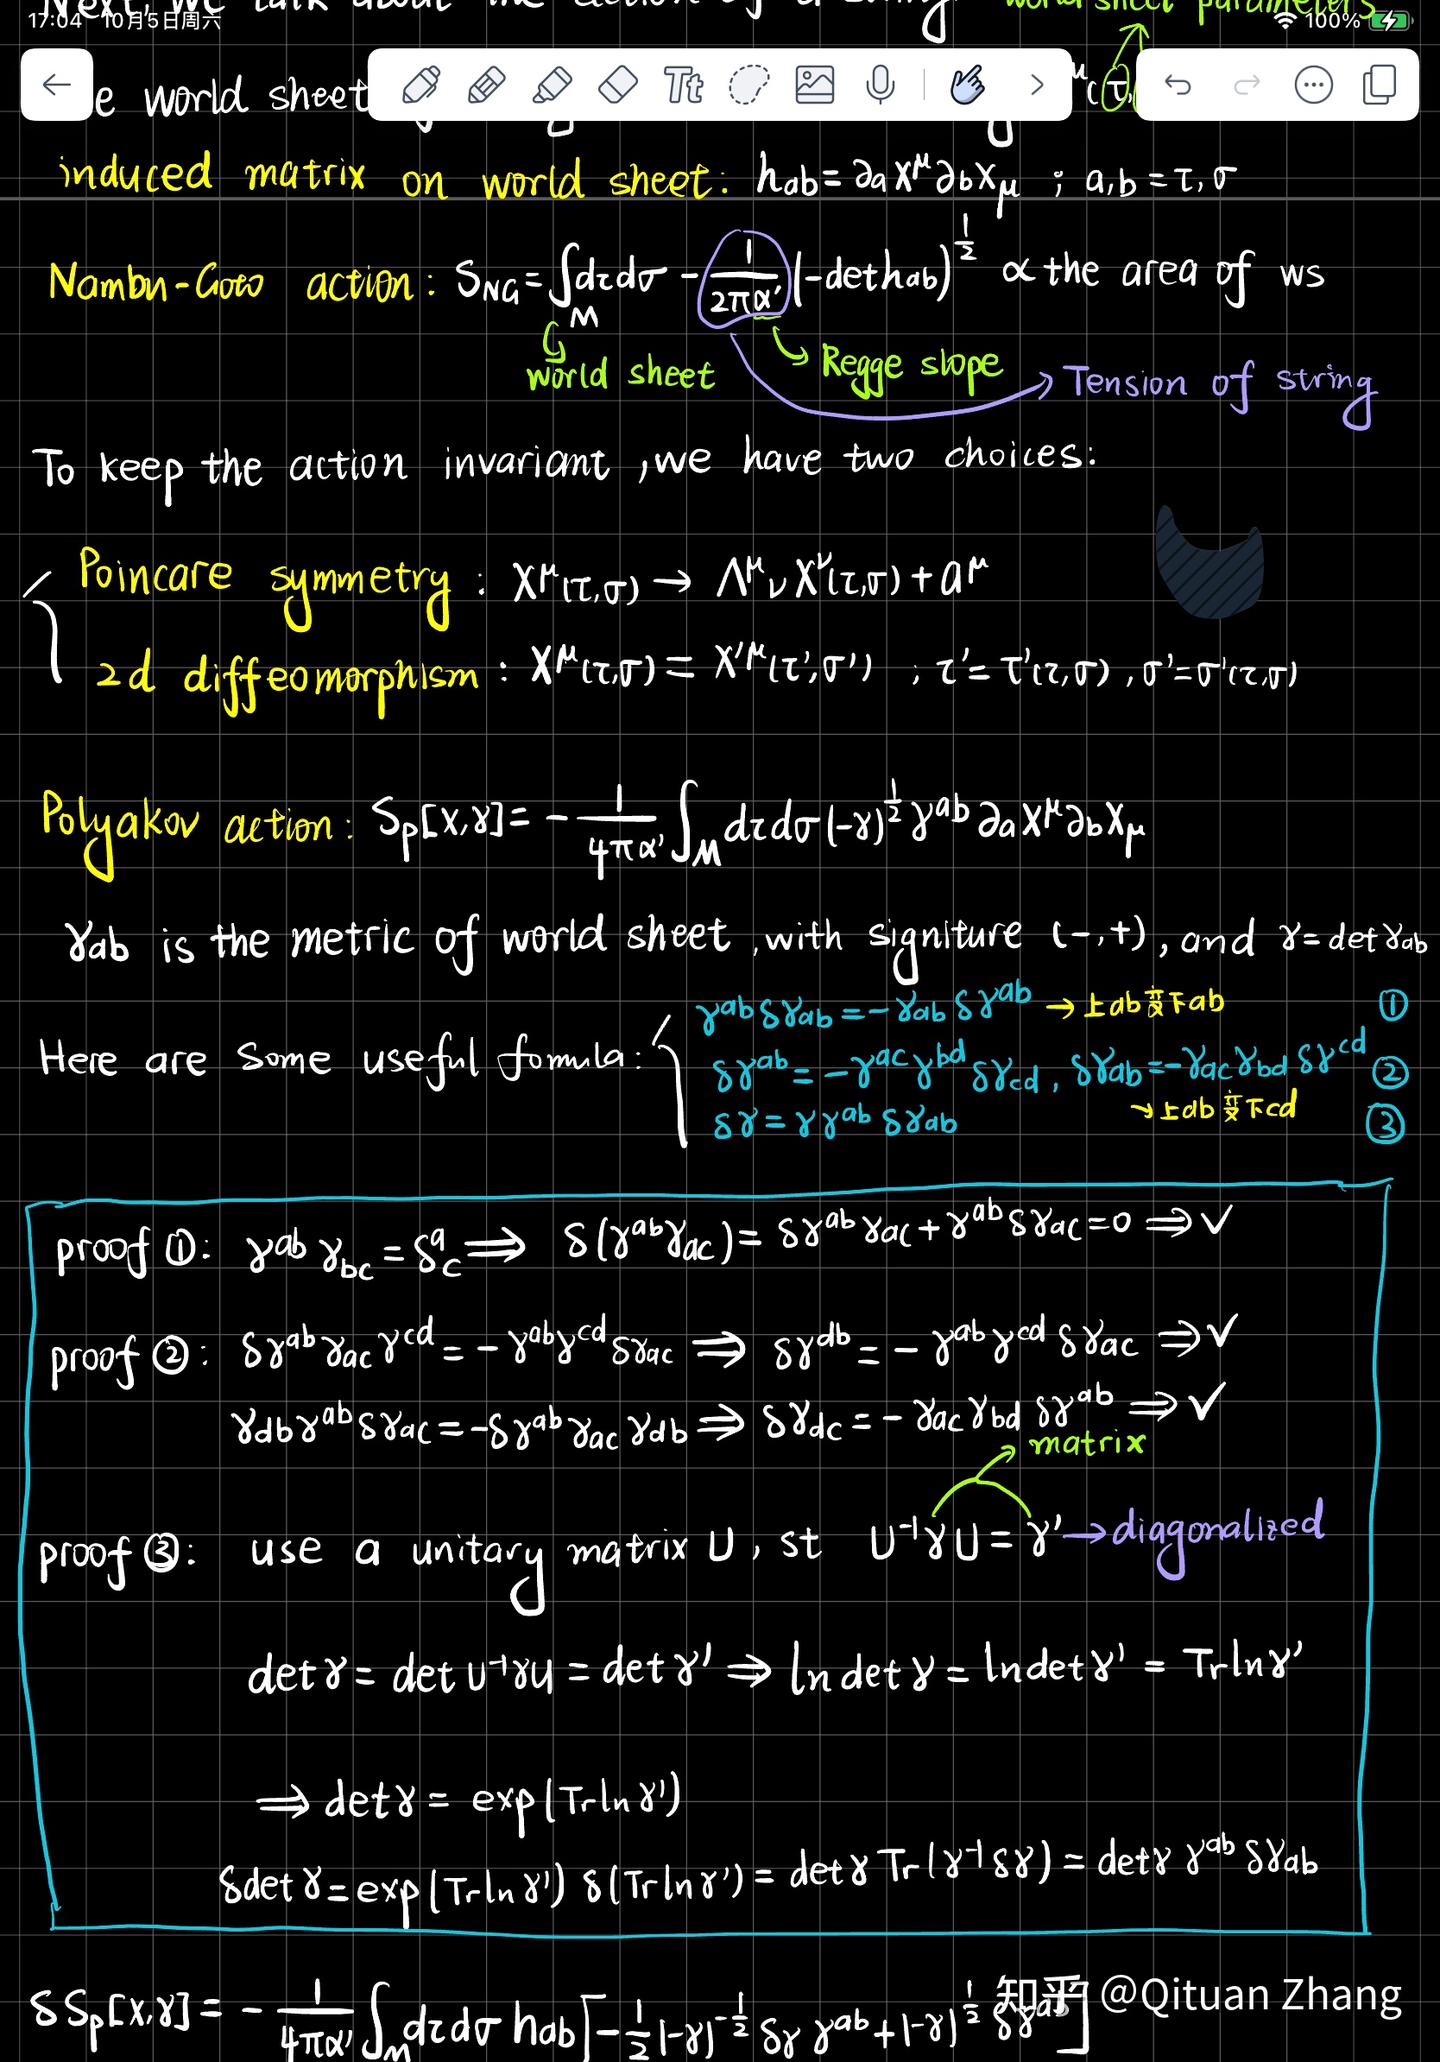 17:04 10月5日周六
100%
Next, we talk about the action of a string. world sheet parameters
e world sheet
Tt
induced matrix on world sheet: hab = ∂aX^μ∂bXμ ; a,b = τ, σ
Nambu-Goto action: S_NG = ∫_M dτdσ - 1/(2πα') (-det hab)^(1/2) ∝ the area of ws
world sheet
Regge slope
Tension of string
To keep the action invariant, we have two choices:
Poincare symmetry: X^μ(τ,σ) → Λ^μ_ν X^ν(τ,σ) + a^μ
2d diffeomorphism: X^μ(τ,σ) = X'^μ(τ',σ') ; τ' = τ'(τ,σ), σ' = σ'(τ,σ)
Polyakov action: S_p[X,γ] = - 1/(4πα') ∫_M dτdσ (-γ)^(1/2) γ^ab ∂aX^μ∂bXμ
γab is the metric of world sheet, with signiture (-,+), and γ = det γab
Here are some useful fomula:
γ^ab δγ_ab = -γ_ab δγ^ab → 上ab变下ab ①
δγ^ab = -γ^ac γ^bd δγ_cd, δγ_ab = -γ_ac γ_bd δγ^cd ②
→ 上ab变下cd
δγ = γγ^ab δγ_ab ③
proof ①: γ^ab γ_bc = δ^a_c ⟹ δ(γ^ab γ_ac) = δγ^ab γ_ac + γ^ab δγ_ac = 0 ⟹ ✓
proof ②: δγ^ab γ_ac γ^cd = -γ^ab γ^cd δγ_ac ⟹ δγ^db = -γ^ab γ^cd δγ_ac ⟹ ✓
γ_db γ^ab δγ_ac = -δγ^ab γ_ac γ_db ⟹ δγ_dc = -γ_ac γ_bd δγ^ab ⟹ ✓
matrix
proof ③: use a unitary matrix U, st U^-1 γ U = γ' → diagonalized
det γ = det U^-1 γ U = det γ' ⟹ ln det γ = ln det γ' = Tr ln γ'
⟹ det γ = exp(Tr ln γ')
δ det γ = exp(Tr ln γ') δ(Tr ln γ') = det γ Tr(γ^-1 δγ) = det γ γ^ab δγ_ab
δS_p[X,γ] = - 1/(4πα') ∫_M dτdσ hab [-1/2 (-γ)^(-1/2) δγ γ^ab + (-γ)^(1/2) δγ^ab]
知乎 @Qituan Zhang